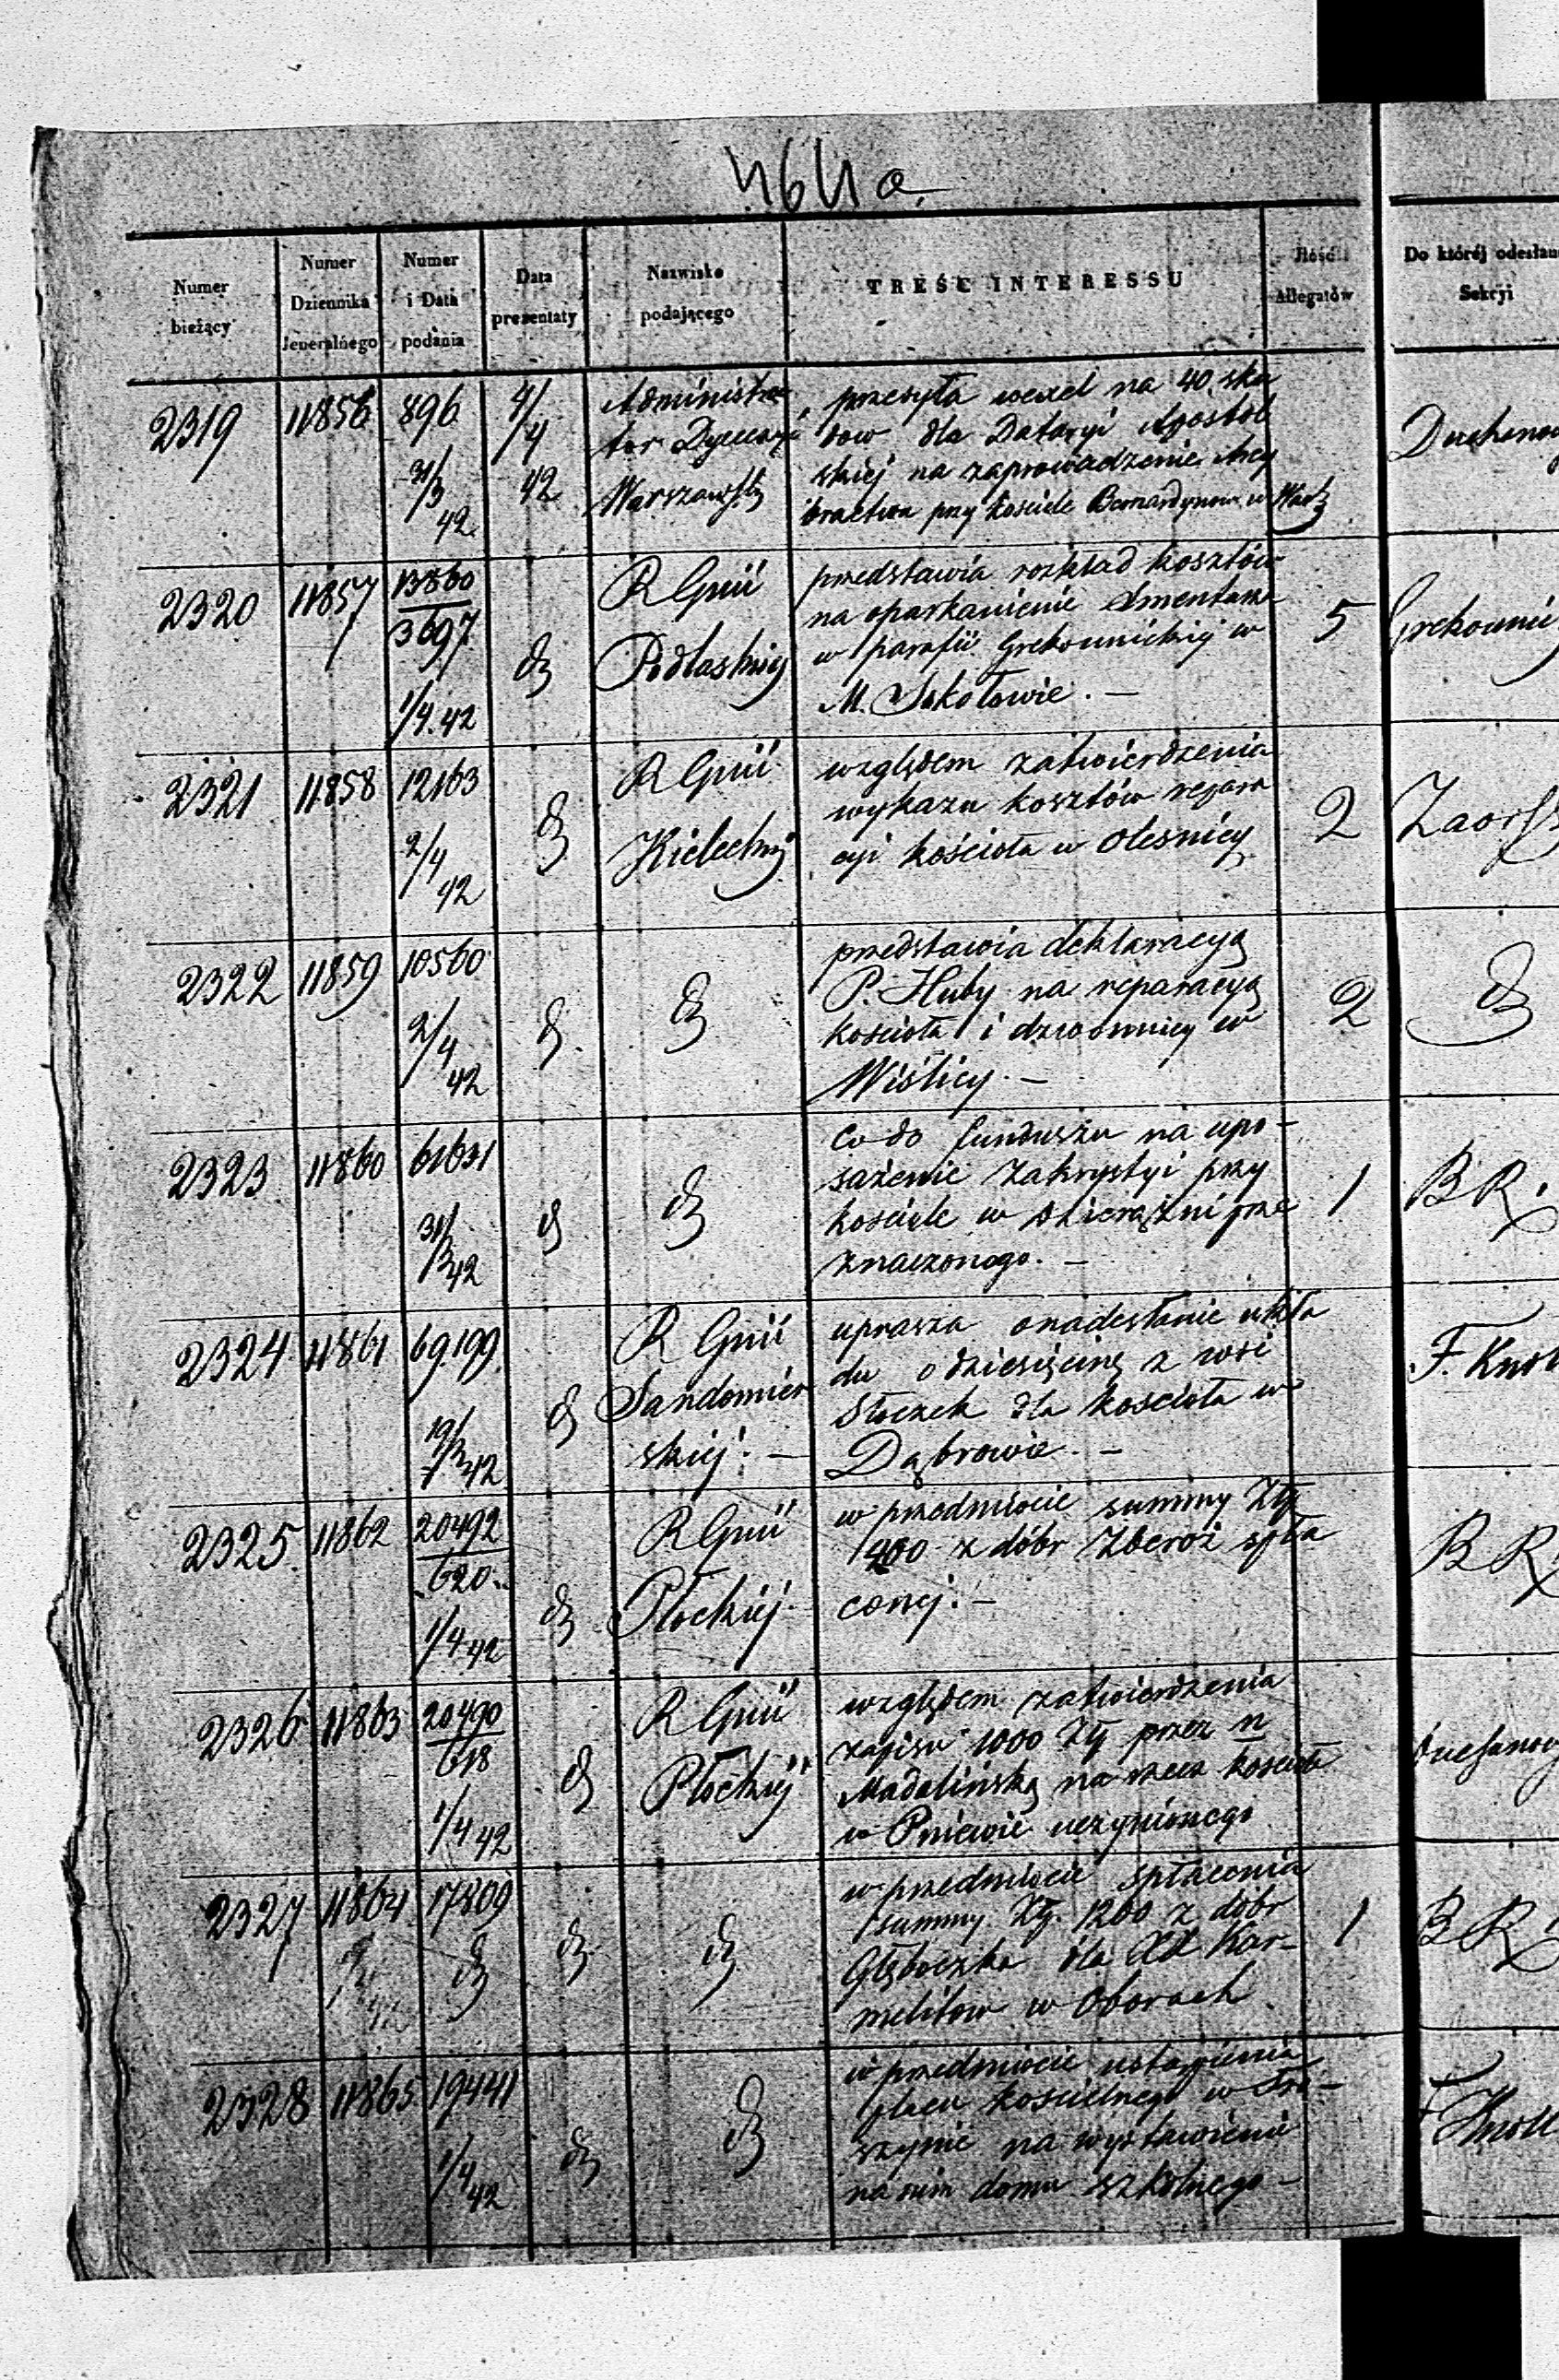 464 a.
Numer bieżący | Numer Dziennika Jeneralnego | Numer i Data podania | Data prezentaty | Nazwisko podającego | TREŚĆ INTERESSU | Ilość Allegatów | Do któréj odesłan Sekcyi
2319 | 11856 | 896 31/3 42 | 4/4 42 | Administra
tor Dyecezyi
Warszawskiej | przesyła wexel na 40 sku
dow dla Dataryi Apostol
skiej na zaprowadzenie Arcy
bractwa przy kościele Bernardynow w Warcie
2320 | 11857 | 13860/3697 1/4.42 | do | R Gnii
Podlaskiej | przedstawia rozkład kosztów
na oparkanienie cmentarza
w parafii Grekounickiej w
M. Sokołowie. — | 5 | Grekounic
2321 | 11858 | 12163 2/4 42 | do | R Gnii
Kieleckiej | względem zatwierdzenia
wykazu kosztów repara
cyi kościoła w Olesnicy | 2
2322 | 11859 | 10560 2/4 42 | do | do | przedstawia deklaracyą
P. Huby na reparacyą
kościoła i dzwonnicy w
Wiślicy. — | 2 | do
2323 | 11860 | 61631 31/3 42 | do | do | Co do funduszu na upo-
sażenie zakrystyi przy
kościele w Dzierążni prze
znaczonego. — | 1 | B R.
2324 | 11861 | 69.199 19/3 42 | do | R Gnii
Sandomier
skiej. — | uprasza o nadesłanie ukła
du o dziesięcinę z wsi
Stoczek dla kościoła w
Dąbrowie. — | F. Knol
2325 | 11862 | 20492/620 1/4 42 | do | R Gnii
Płockiej | w przedmiocie summy Złp
400 z dóbr Zberoż spła
conej. — | B R
2326 | 11863 | 20490/618 1/4 42 | do | R Gnii
Płockiej | względem zatwierdzenia
zapisu 1000 Złp przez n
Madalińską na rzecz kościoła
w Pniewie uczynionego
2327 | 11864 | 17809 do | do | do | w przedmiocie spłacenia
summy Złp. 1200 z dóbr
Głęboczka dla XX Kar-
melitow w Oborach | 1 | B R.
2328 | 11865 | 19441 1/4 42 | do | do | w przedmiocie ustąpienia
placu kościelnego w
szynie na wystawienie
na nim domu szkolnego —